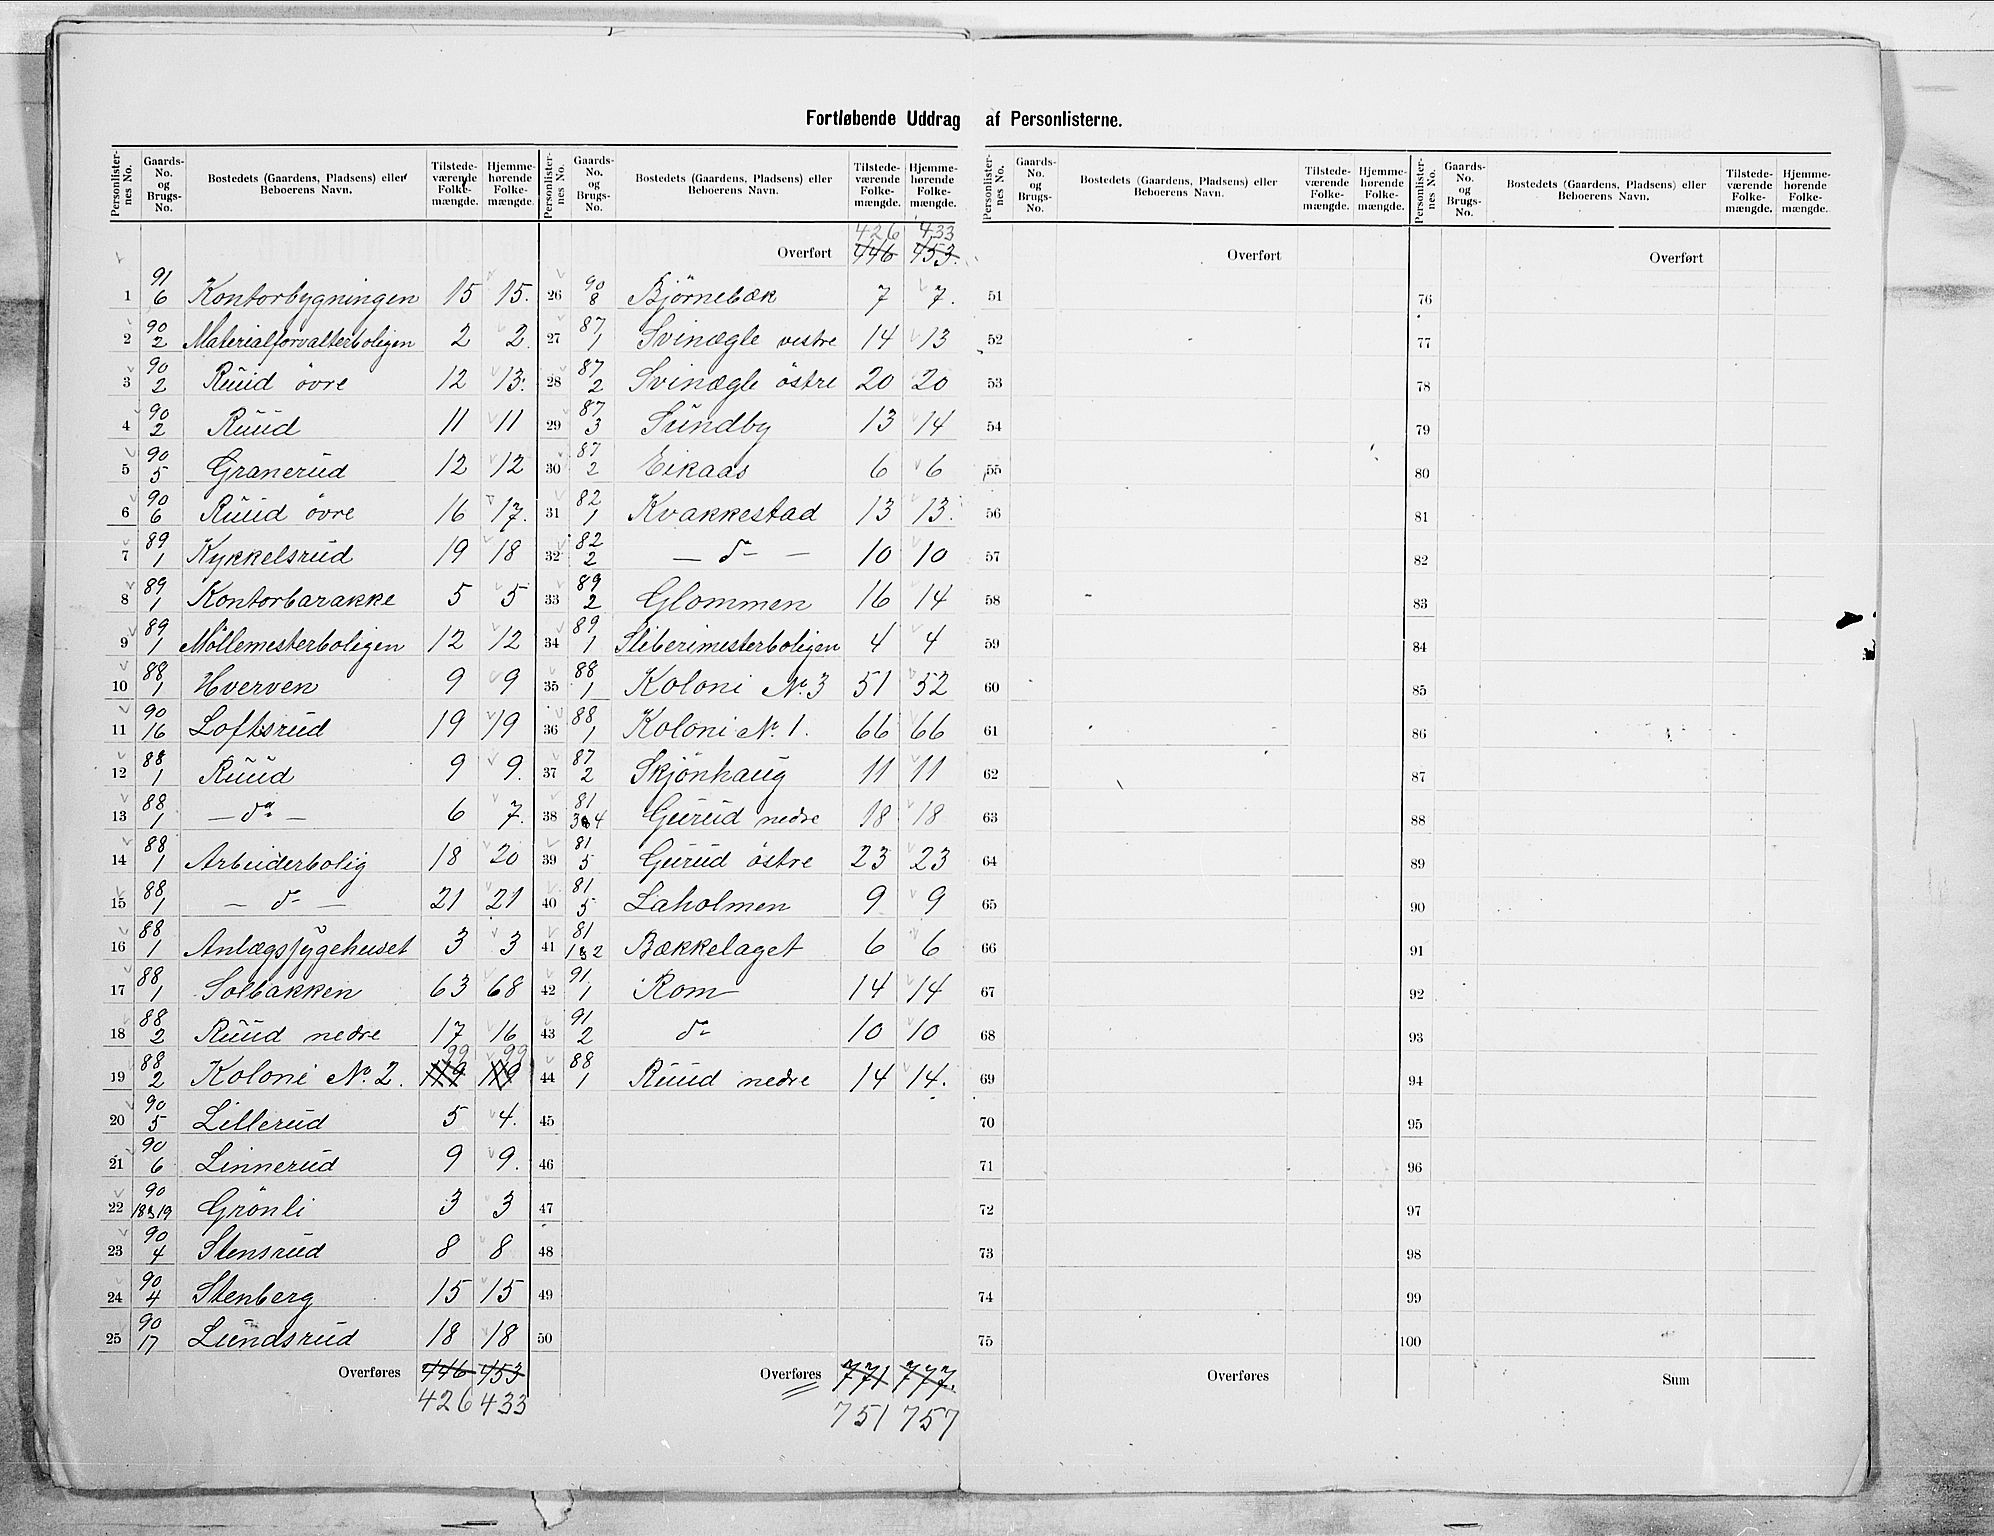 Fortløbende Uddrag af Personlisterne.
Personlister-nes No. | Gaards-No. og Brugs-No. | Bostedets (Gaardens, Pladsens) eller Beboerens Navn. | Tilstede-værende Folke-mængde. | Hjemme-hørende Folke-mængde.
1 | 91/6 | Kontorbygningen | 15 | 15.
2 | 90/2 | Materialforvalterboligen | 2 | 2.
3 | 90/2 | Ruud övre | 12 | 13.
4 | 90/2 | Ruud | 11 | 11
5 | 90/5 | Granerud | 12 | 12
6 | 90/6 | Ruud övre | 16 | 17.
7 | 89/1 | Kykkelsrud | 19 | 18
8 | 89/1 | Kontorbarakke | 5 | 5
9 | 89/1 | Möllemesterboligen | 12 | 12
10 | 88/1 | Hverven | 9 | 9
11 | 90/16 | Loftsrud | 19 | 19
12 | 88/1 | Ruud | 9 | 9.
13 | 88/1 | — do — | 6 | 7.
14 | 88/1 | Arbeiderbolig | 18 | 20
15 | 88/1 | — do — | 21 | 21
16 | 88/1 | Anlægssygehuset | 3 | 3
17 | 88/1 | Solbakken | 63 | 68
18 | 88/2 | Ruud nedre | 17 | 16
19 | 88/2 | Koloni No. 2. | 119 99 | 119 99
20 | 90/5 | Lillerud | 5 | 4.
21 | 90/6 | Linnerud | 9 | 9.
22 | 90/18&19 | Grönli | 3 | 3
23 | 90/4 | Stensrud | 8 | 8
24 | 90/4 | Stenberg | 15 | 15
25 | 90/17 | Lundsrud | 18 | 18
Overføres 446 453
426 433
Personlister-nes No. | Gaards-No. og Brugs-No. | Bostedets (Gaardens, Pladsens) eller Beboerens Navn. | Tilstede-værende Folke-mængde. | Hjemme-hørende Folke-mængde.
426 433
Overført 446 453.
26 | 90/8 | Bjørnebæk | 7 | 7.
27 | 87/1 | Svinægle vestre | 14 | 13
28 | 87/2 | Svinægle östre | 20 | 20
29 | 87/3 | Sundby | 13 | 14
30 | 87/2 | Eikaas | 6 | 6
31 | 82/1 | Kvakkestad | 13 | 13.
32 | 82/2 | — do — | 10 | 10
33 | 89/2 | Glommen | 16 | 14
34 | 89/1 | Sliberimesterboligen | 4 | 4
35 | 88/1 | Koloni No. 3 | 51 | 52
36 | 88/1 | Koloni No. 1. | 66 | 66
37 | 87/2 | Skjönhaug | 11 | 11
38 | 81/3&4 | Gurud nedre | 18 | 18
39 | 81/5 | Gurud östre | 23 | 23
40 | 81/5 | Laholmen | 9 | 9
41 | 81/1&2 | Bækkelaget | 6 | 6
42 | 91/1 | Rom | 14 | 14
43 | 91/2 | do | 10 | 10
44 | 88/1 | Ruud nedre | 14 | 14.
45
46
47
48
49
50
Overføres 771 777.
751 757
Personlister-nes No. | Gaards-No. og Brugs-No. | Bostedets (Gaardens, Pladsens) eller Beboerens Navn. | Tilstede-værende Folke-mængde. | Hjemme-hørende Folke-mængde.
Overført
51
52
53
54
55
56
57
58
59
60
61
62
63
64
65
66
67
68
69
70
71
72
73
74
75
Overføres
Personlister-nes No. | Gaards-No. og Brugs-No. | Bostedets (Gaardens, Pladsens) eller Beboerens Navn. | Tilstede-værende Folke-mængde. | Hjemme-hørende Folke-mængde.
Overført
76
77
78
79
80
81
82
83
84
85
86
87
88
89
90
91
92
93
94
95
96
97
98
99
100
Sum